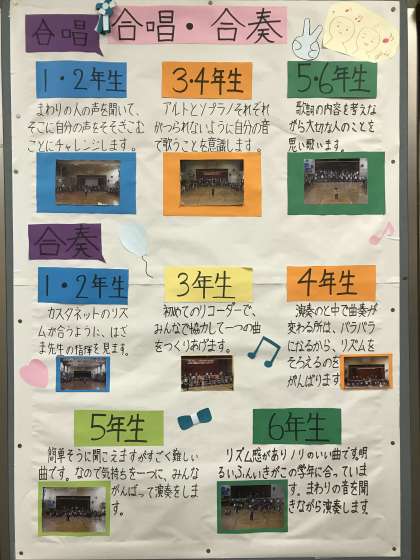 合唱
合唱・合奏
1・2年生
まわりの人の声を聞いて、
そこに自分の声をそそぎこむ
ことにチャレンジします。
3・4年生
アルトとソプラノそれぞれ
がつられないように自分の音
で歌うことを意識します。
5・6年生
歌詞の内容を考えな
がら大切な人のことを
思い歌います。
合奏
1・2年生
カスタネットのリズ
ムが合うように、はざま
先生の指揮を見ます。
3年生
初めてのリコーダーで、
みんなで協力して一つの曲
をつくりあげます。
4年生
演奏のと中で曲奏が
変わる所は、バラバラ
になるから、リズムを
そろえるのを
がんばります。
5年生
簡単そうに聞こえますがすごく難しい
曲です。なので気持ちを一つに、みんな
がんばって演奏をしま
す。
6年生
リズム感がありノリのいい曲です。明
るいふんいきがこの学年に合っていま
す。まわりの音を聞
きながら演奏します。